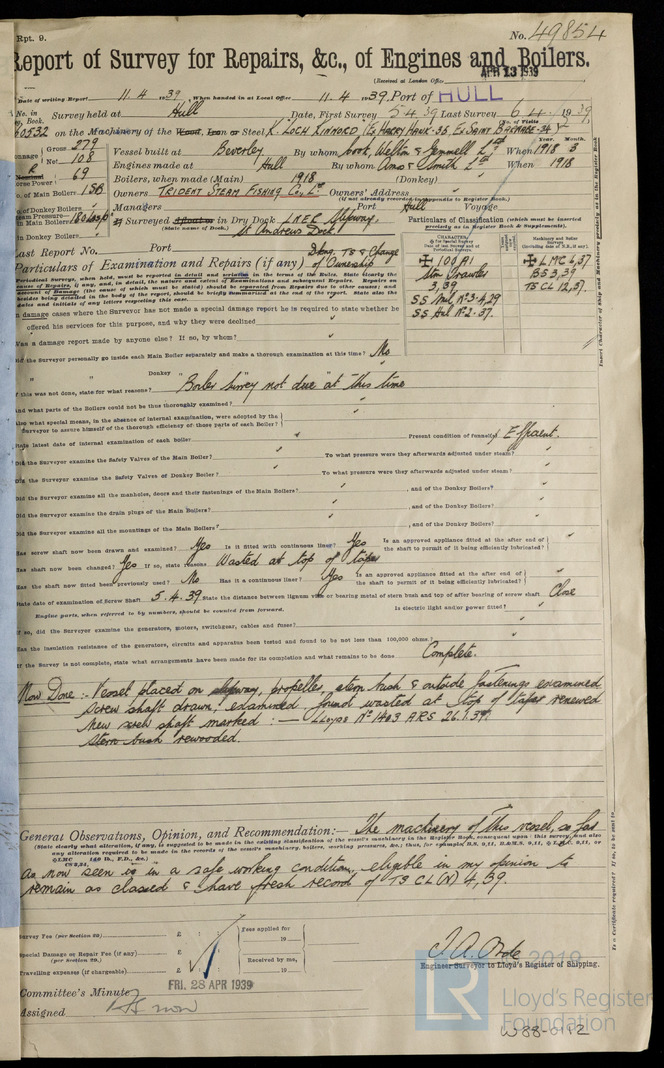 Rpt. 9.
No. 49854
Report of Survey for Repairs, &c., of Engines and Boilers.
(Received at London Office
APR 13 1939
Date of writing Report 11.4.1939 When handed in at Local Office 11.4.1939 Port of HULL
No. in Survey held at Hull Date, First Survey 5.4.39 Last Survey 6.4.1939
Reg. Book. (No. of Visits
60532 on the Machinery of the Wood, Iron or Steel K. "LOCH KINNORD" (Ex HARRY HAWK-36, Ex SAINT
Gross 279
Net 108
Vessel built at Beverley By whom Cook, Welton & Gemmell Ltd When 1918 3
Year. Month.
Engines made at Hull By whom Amos & Smith Ltd When 1918
69
Boilers, when made (Main) 1918 (Donkey)
No. of Main Boilers 1SB
Owners TRIDENT STEAM FISHING Co., Ld Owners' Address
(if not already recorded in Appendix to Register Book.)
No. of Donkey Boilers
Managers Port Hull Voyage
Steam Pressure—
in Main Boilers
If Surveyed Afloat or in Dry Dock LNER Slipway,
(State name of Dock.) St Andrews Dock
in Donkey Boilers
Particulars of Classification (which must be inserted precisely as in Register Book & Supplements).
Last Report No. Port
Particulars of Examination and Repairs (if any) Dkng, TS & Change of Ownership
+ 100 A1
Stm Trawler
3,39
SS Hul No 2-37.
+ LMC 6,37
BS 3,39
TS CL 12,37.
In damage cases where the Surveyor has not made a special damage report he is required to state whether he
offered his services for this purpose, and why they were declined
Was a damage report made by anyone else? If so, by whom?
Did the Surveyor personally go inside each Main Boiler separately and make a thorough examination at this time? No
" " Donkey "
If this was not done, state for what reasons? "Boiler Survey not due" at this time
And what parts of the Boilers could not be thoroughly examined?
Also what special means, in the absence of internal examination, were adopted by the
Surveyor to assure himself of the thorough efficiency of those parts of each Boiler?
State latest date of internal examination of each boiler Present condition of funnel(s) Efficient.
Did the Surveyor examine the Safety Valves of the Main Boiler? To what pressure were they afterwards adjusted under steam?
Did the Surveyor examine the Safety Valves of Donkey Boiler? To what pressure were they afterwards adjusted under steam?
Did the Surveyor examine all the manholes, doors and their fastenings of the Main Boilers? , and of the Donkey Boilers?
Did the Surveyor examine the drain plugs of the Main Boilers? , and of the Donkey Boilers?
Did the Surveyor examine all the mountings of the Main Boilers? , and of the Donkey Boilers?
Has screw shaft now been drawn and examined? Yes Is it fitted with continuous liner? Yes Is an approved appliance fitted at the after end of the shaft to permit of it being efficiently lubricated?
Has shaft now been changed? Yes If so, state reasons Wasted at top of taper
Has the shaft now fitted been previously used? No Has it a continuous liner? Yes Is an approved appliance fitted at the after end of the shaft to permit of it being efficiently lubricated?
State date of examination of Screw Shaft 5.4.39 State the distance between lignum vitæ or bearing metal of stern bush and top of after bearing of screw shaft Close
Engine parts, when referred to by numbers, should be counted from forward. Is electric light and/or power fitted?
If so, did the Surveyor examine the generators, motors, switchgear, cables and fuses?
Has the insulation resistance of the generators, circuits and apparatus been tested and found to be not less than 100,000 ohms?
If the Survey is not complete, state what arrangements have been made for its completion and what remains to be done Complete.
Now Done :- Vessel placed on slipway, propeller, stern bush & outside fastenings examined
screw shaft drawn & examined, found wasted at top of taper renewed
New screw shaft marked :— Lloyds No 1403 ARS 26.1.39.
Stern bush rewooded
General Observations, Opinion, and Recommendation:— The machinery of this vessel, so far
as now seen is in a safe working condition, eligible in my opinion to
remain as classed & have fresh record of TS CL(N) 4,39.
Survey Fee (per Section 29) £ : :
Special Damage or Repair Fee (if any) £ : :
(per Section 29.)
Travelling expenses (if chargeable) £ : :
Fees applied for
19
Received by me,
19
Engineer Surveyor to Lloyd's Register of Shipping.
Committee's Minute FRI. 28 APR 1939
Assigned As now
2019
LR
Lloyd's Register
Foundation
W88-0192